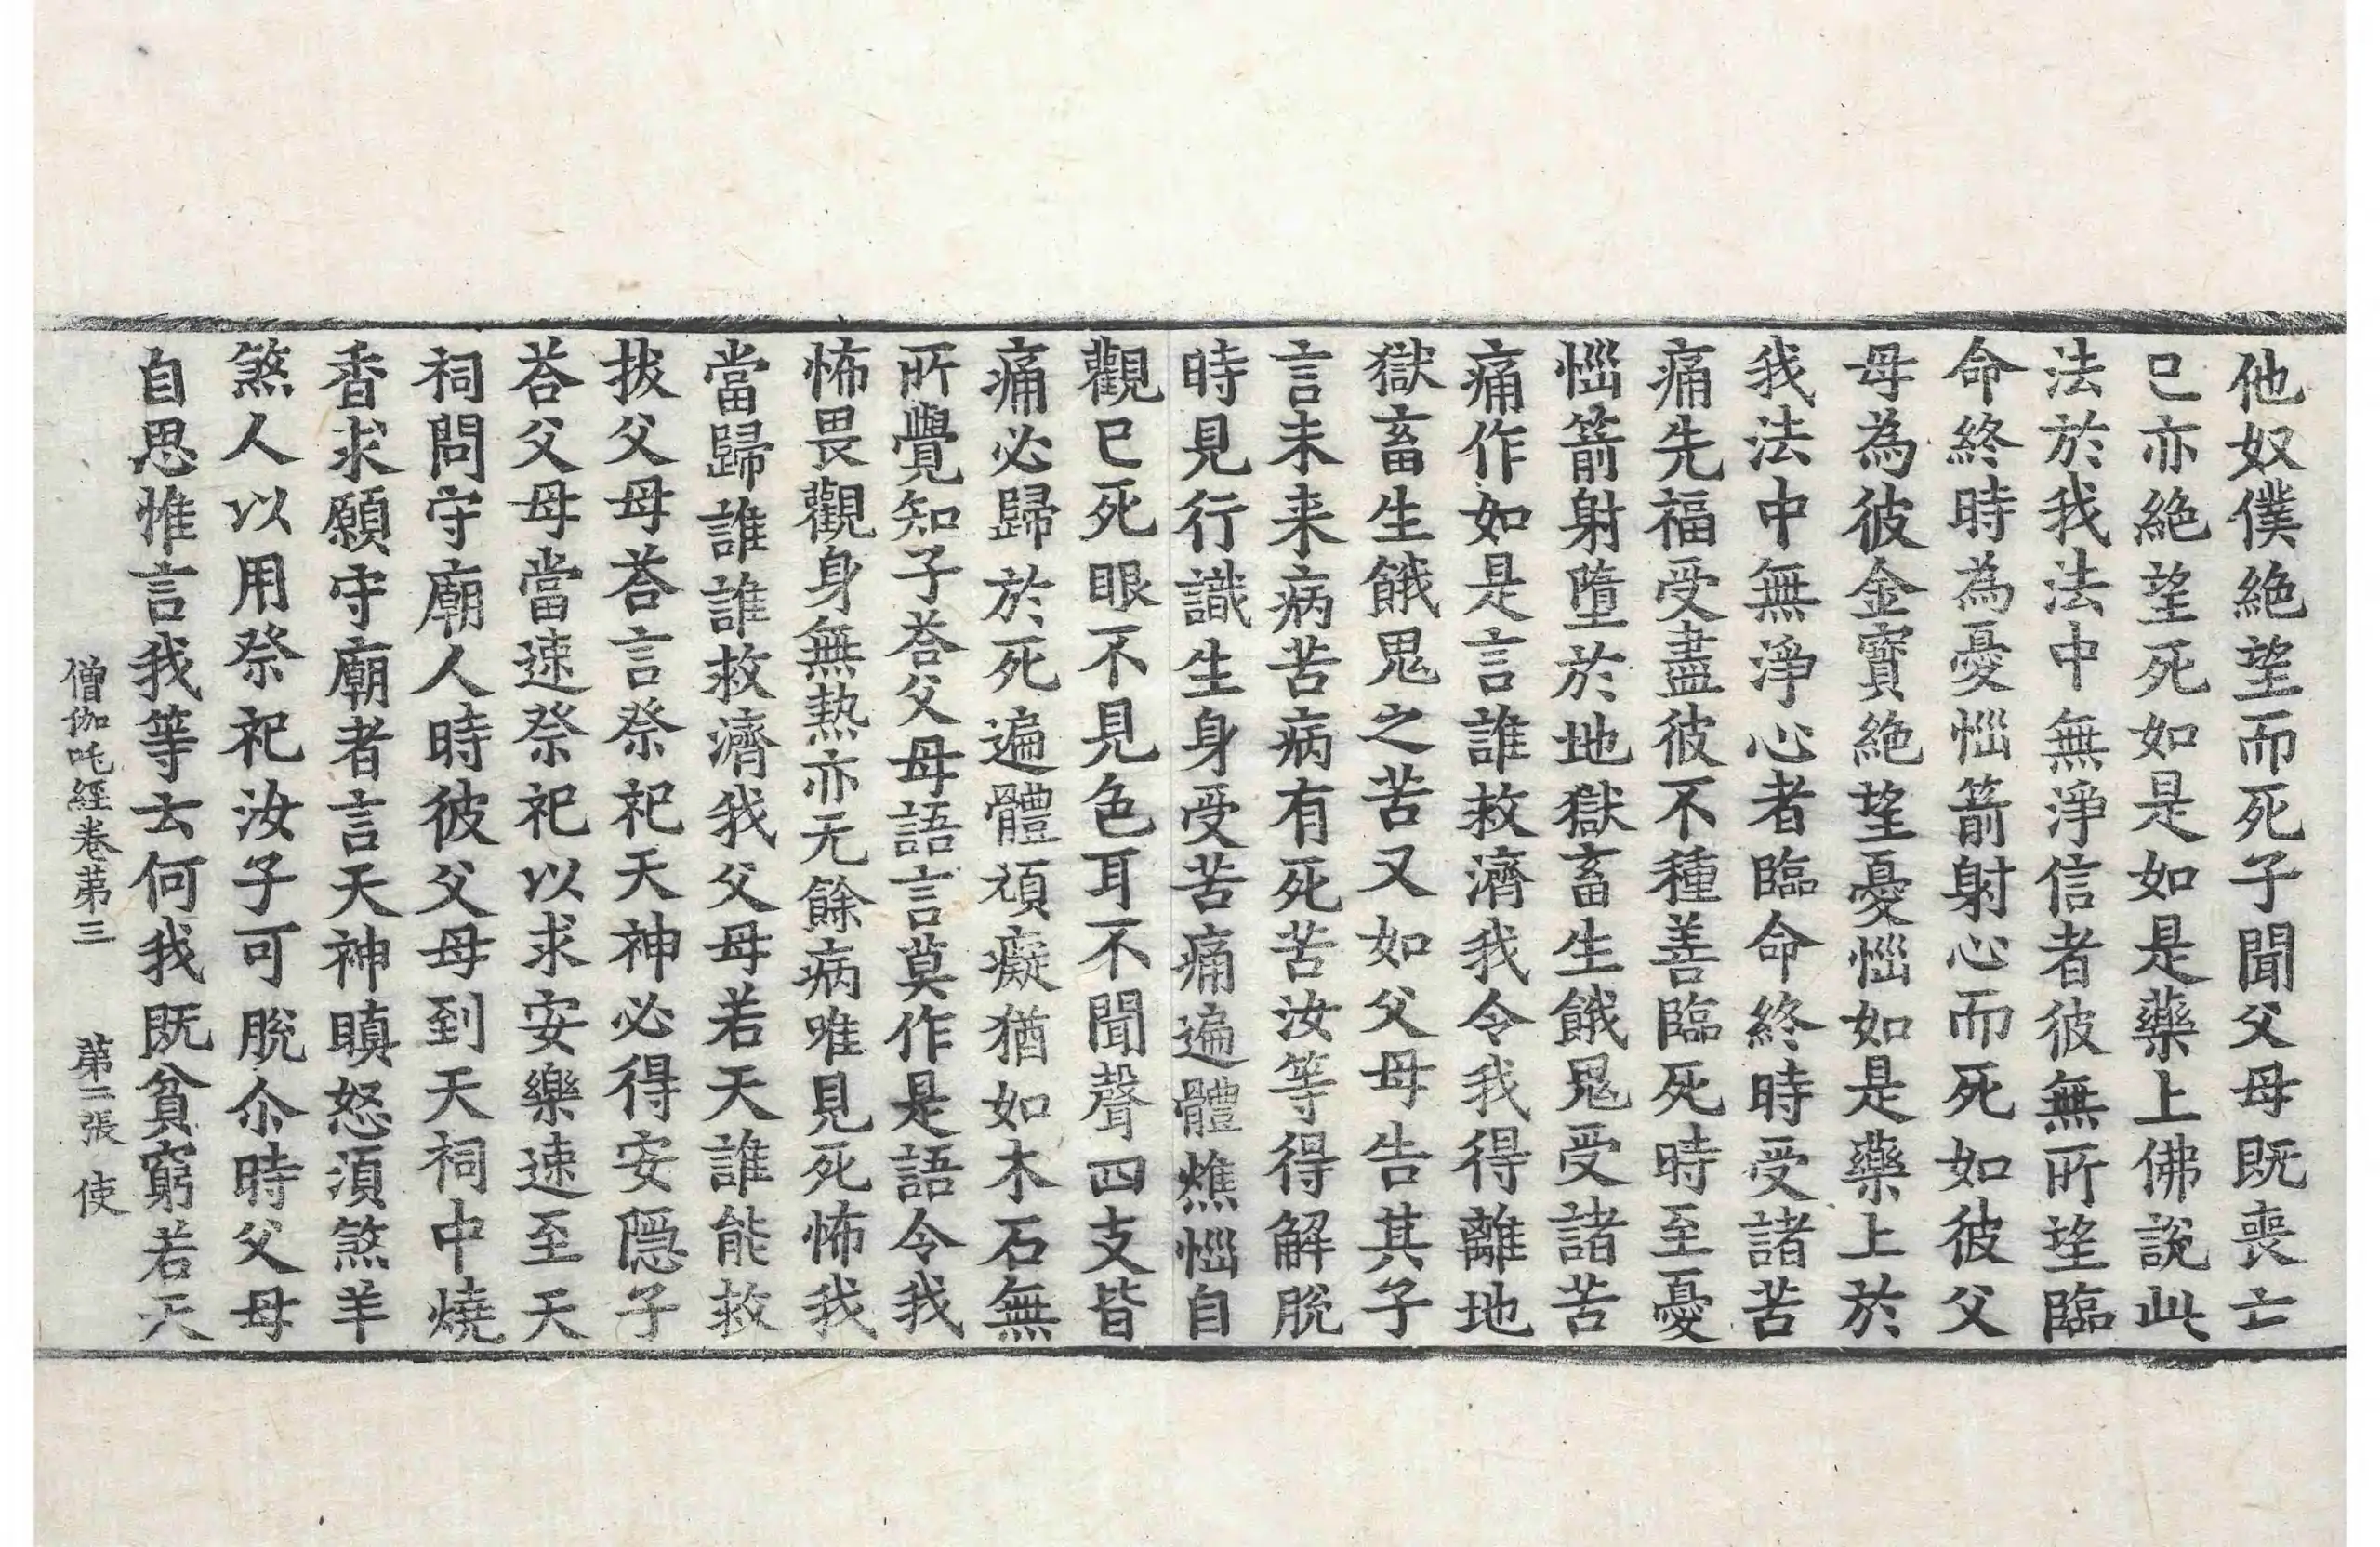 他奴僕絶望而死子聞父母既喪亡
已亦絶望死如是如是藥上佛說此
法於我法中無淨信者彼無所望臨
命終時為憂惱箭射心而死如彼父
母為彼金寶絶望憂惱如是藥上於
我法中無淨心者臨命終時受諸苦
痛先福受盡彼不種善臨死時至憂
惱箭射墮於地獄畜生餓鬼受諸苦
痛作如是言誰救濟我令我得離地
獄畜生餓鬼之苦又如父母告其子
言未来病苦病有死苦汝等得解脫
時見行識生身受苦痛遍體燋惱自
觀已死眼不見色耳不聞聲四支皆
痛必歸於死遍體頑癡猶如木石無
所覺知子荅父母語言莫作是語令我
怖畏觀身無熱亦无餘病唯見死怖我
當歸誰誰救濟我父母若天誰能救
拔父母荅言祭祀天神必得安隱子
荅父母當速祭祀以求安樂速至天
祠問守廟人時彼父母到天祠中燒
香求願守廟者言天神瞋怒須煞羊
煞人以用祭祀汝子可脫尒時父母
自思惟言我等去何我既貧窮若天
僧伽吒經卷第三　第二張　使